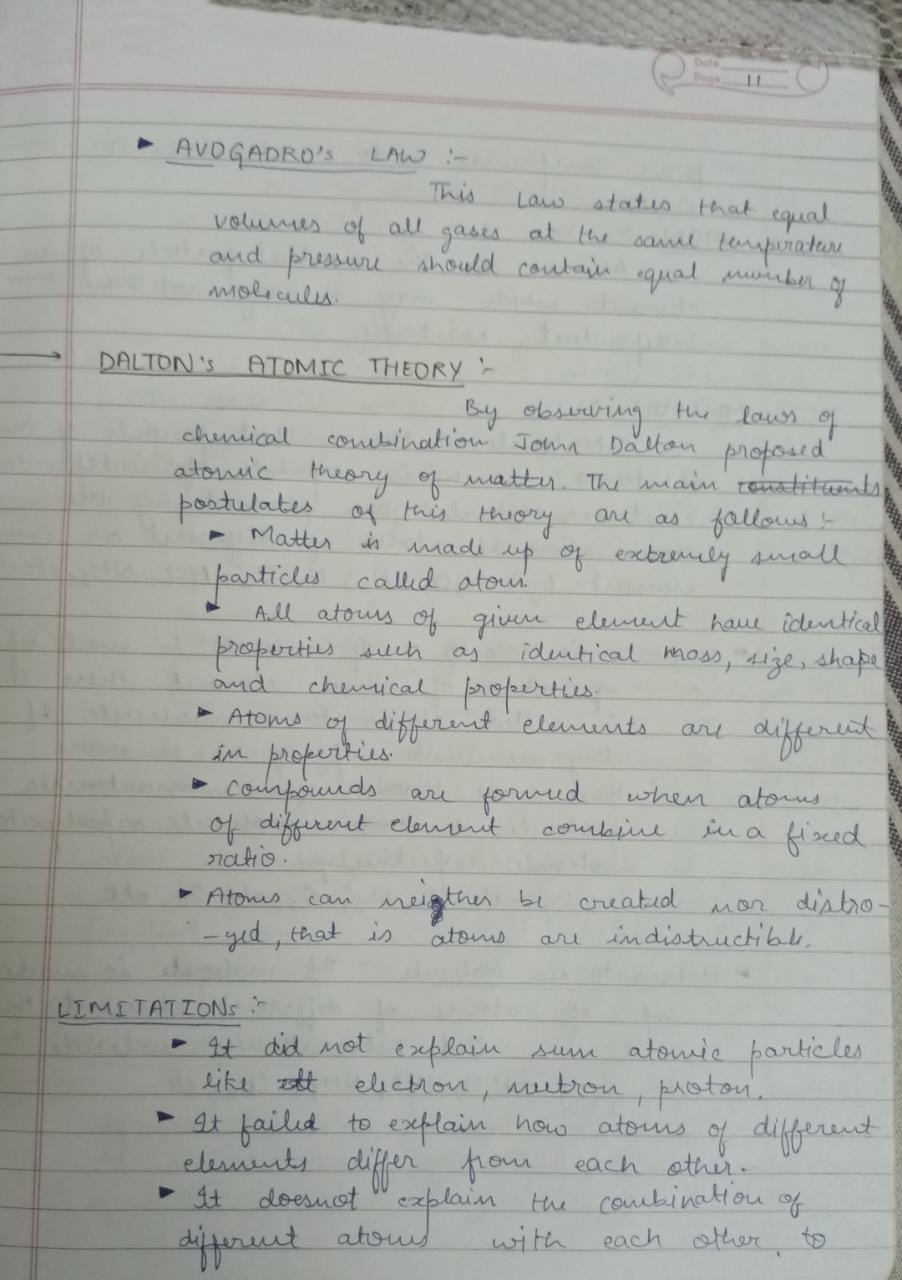 Date
Page 11
► AVOGADRO's LAW :-
This Law states that equal
volumes of all gases at the same temperature
and pressure should contain equal number of
molecules.
→ DALTON's ATOMIC THEORY :-
By observing the laws of
chemical combination John Dalton proposed
atomic theory of matter. The main constituents
postulates of this theory are as follows :-
► Matter is made up of extremely small
particles called atom.
► All atoms of given element have identical
properties such as identical mass, size, shape
and chemical properties.
► Atoms of different elements are different
in properties.
► Compounds are formed when atoms
of different element combine in a fixed
ratio.
► Atoms can neigther be created nor distro-
-yed, that is atoms are indistructible.
LIMITATIONs :-
► It did not explain sum atomic particles
like electron, neutron, proton.
► It failed to explain how atoms of different
elements differ from each other.
► It doesnot explain the combination of
different atoms with each other, to